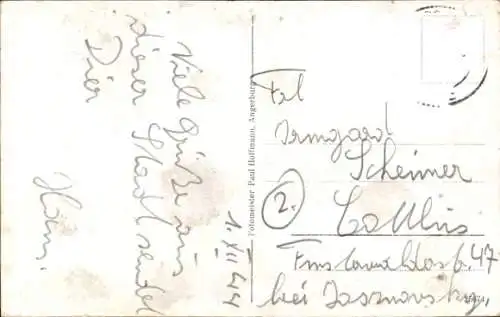 Viele Grüße aus
dieser Stadt sendet
Dir
Hans.
1. XII 44
Fotomeister Paul Hoffmann, Angerburg
Frl
Irmgard
Scheiner
2.
Cottbus
47
bei